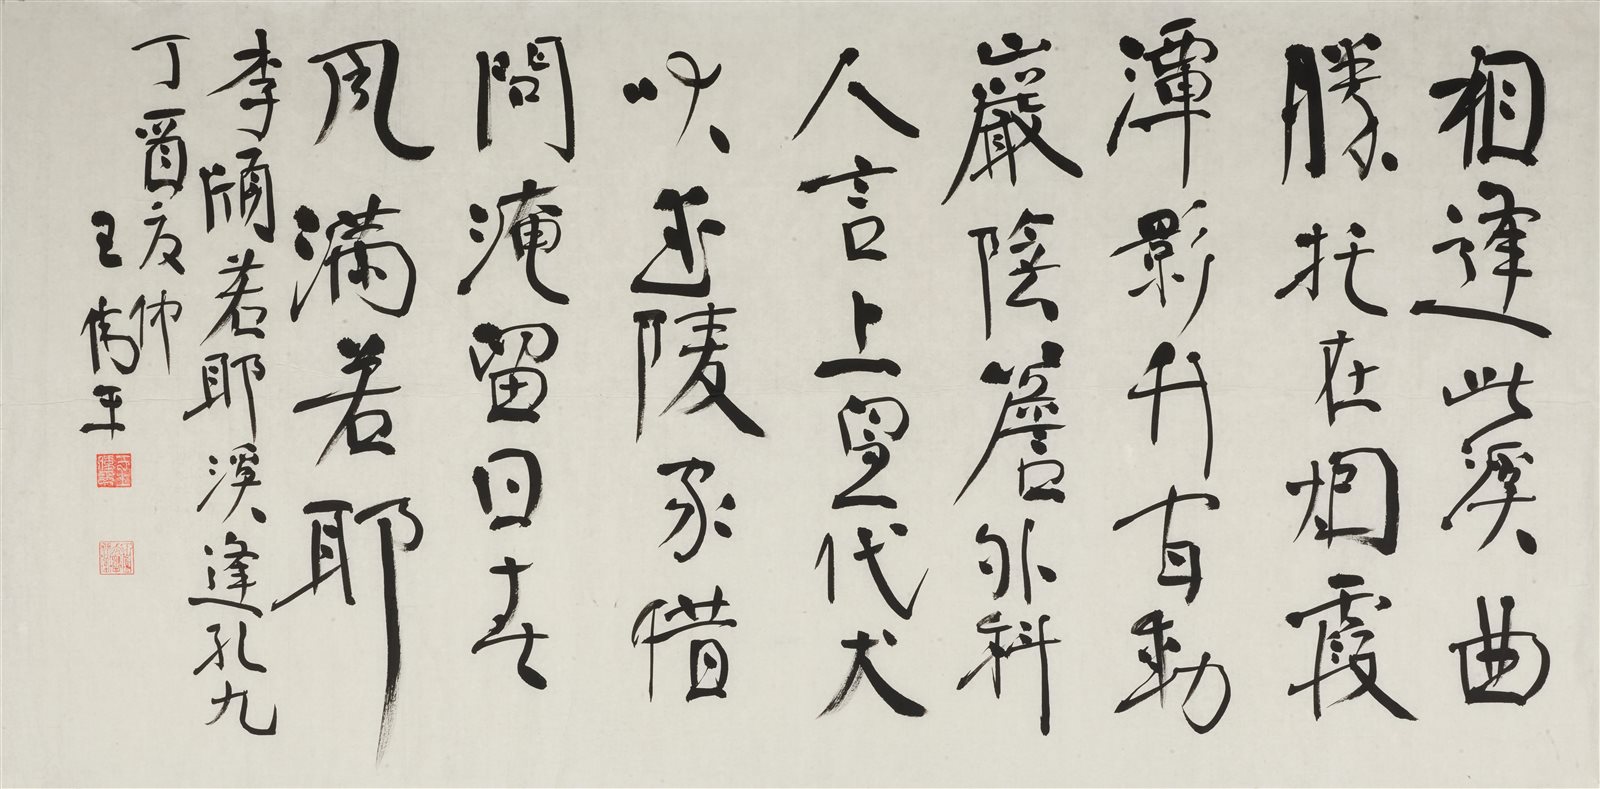 相逢此溪曲
勝托在烟霞
潭影竹間動
巖陰簷外斜
人言上皇代犬
吠武陵家借
問淹留日春
風滿若耶
李頎若耶溪逢孔九
丁酉夏仲
王偉平